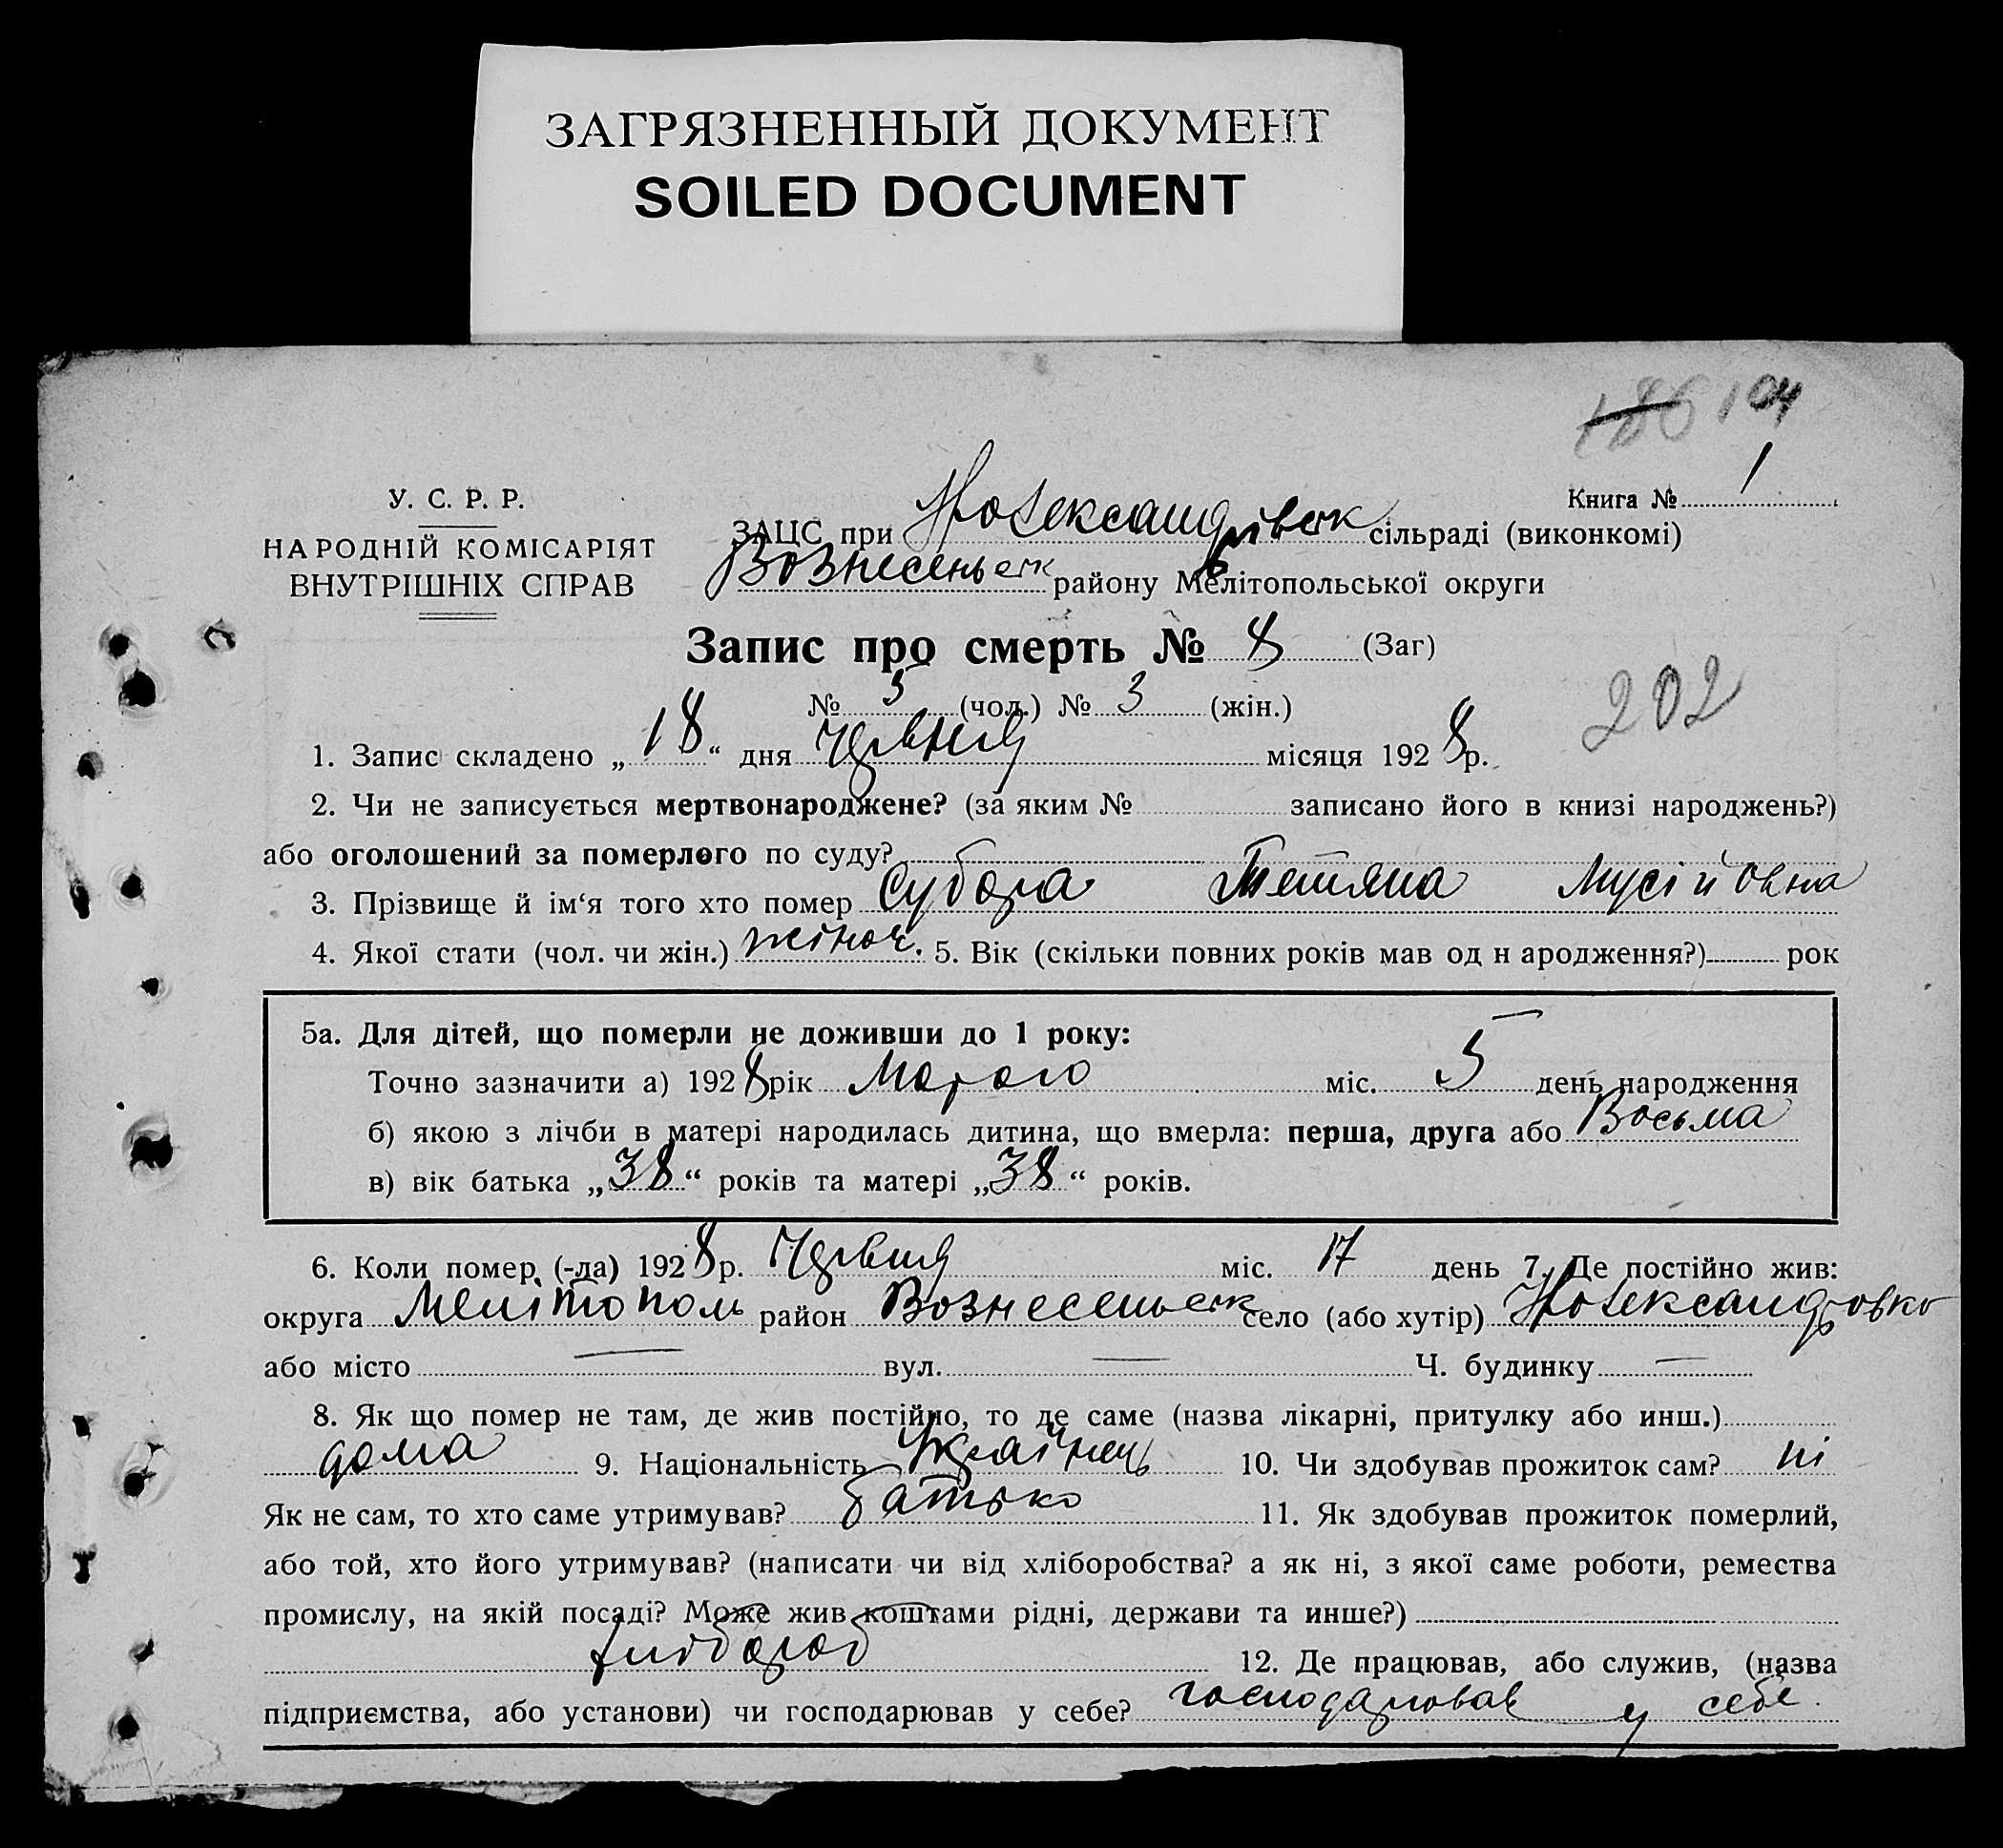 ЗАГРЯЗНЕННЫЙ ДОКУМЕНТ
SOILED DOCUMENT
186 104
У. С. Р. Р.
НАРОДНІЙ КОМІСАРІЯТ
ВНУТРІШНІХ СПРАВ
Книга № 1
ЗАЦС при сільраді (виконкомі)
Вознесенськ району Мелітопольської округи
Запис про смерть № 8 (Заг)
№ 5 (чол.) № 3 (жін.)
202
1. Запис складено „18“ дня Червня місяця 1928р.
2. Чи не записується мертвонароджене? (за яким № записано його в книзі народжень?)
або оголошений за померлого по суду?
3. Прізвище й ім‘я того хто помер Субора Тетяна Мусійовна
4. Якої стати (чол. чи жін.) жіноч. 5. Вік (скільки повних років мав од н ародження?) рок
5а. Для дітей, що померли не доживши до 1 року:
Точно зазначити а) 1928рік міс. 5 день народження
б) якою з лічби в матері народилась дитина, що вмерла: перша, друга або Восьма
в) вік батька „38“ років та матері „38“ років.
6. Коли помер (-ла) 1928р. Червня міс. 17 день 7. Де постійно жив:
округа Мелітополь район Вознесенськ село (або хутір)
або місто — вул. — Ч. будинку —
8. Як що помер не там, де жив постійно, то де саме (назва лікарні, притулку або инш.)
дома 9. Національність Украінець 10. Чи здобував прожиток сам? ні
Як не сам, то хто саме утримував? батько 11. Як здобував прожиток померлий,
або той, хто його утримував? (написати чи від хліборобства? а як ні, з якої саме роботи, ремества
промислу, на якій посаді? Може жив коштами рідні, держави та инше?)
хлібороб 12. Де працював, або служив, (назва
підприємства, або установи) чи господарював у себе? господарював у себе.